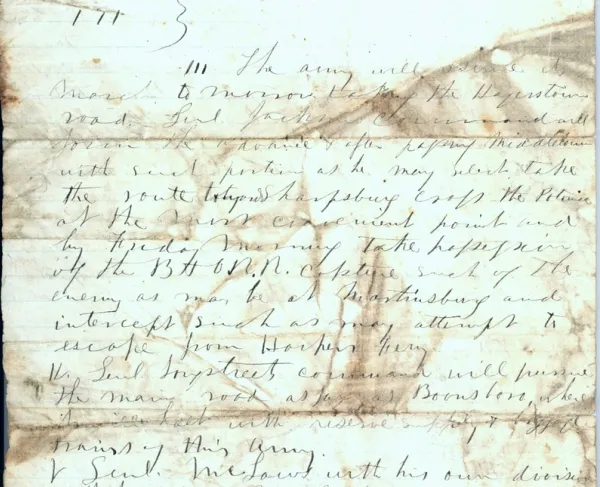 191
III The army will resume its
March to morrow taking the Hagerstown
road. Genl Jackson's Command will
form the advance & after passing Middletown
with such portion as he may select take
the route toward Sharpsburg cross the Potomac
at the most convenient point and
by Friday Morning take possession
of the B & O R.R. Capture such of the
enemy as may be at Martinsburg and
intercept such as may attempt to
escape from Harpers Ferry.
IV Genl Longstreets command will pursue
the main road as far as Boonsboro, where
it will halt with reserve supply & baggage
trains of this army.
V Genl. McLaws with his own division